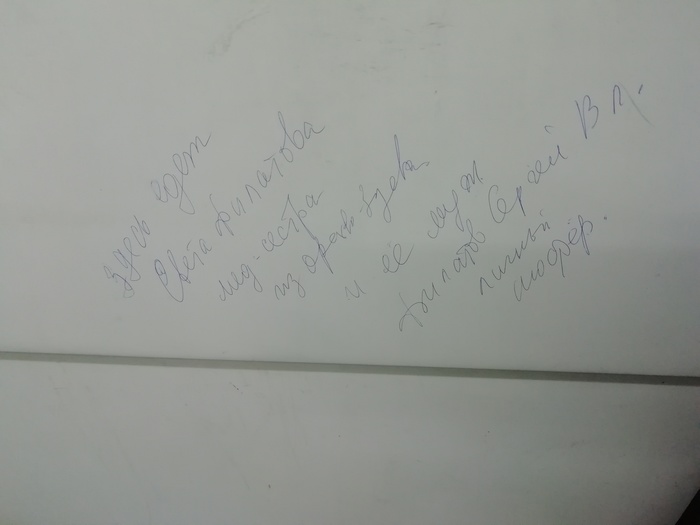 Здесь едет
Света Филатова
мед-сестра
из Орехо-Зуева
и её муж
Филатов Сергей В М.
личный
шофёр.